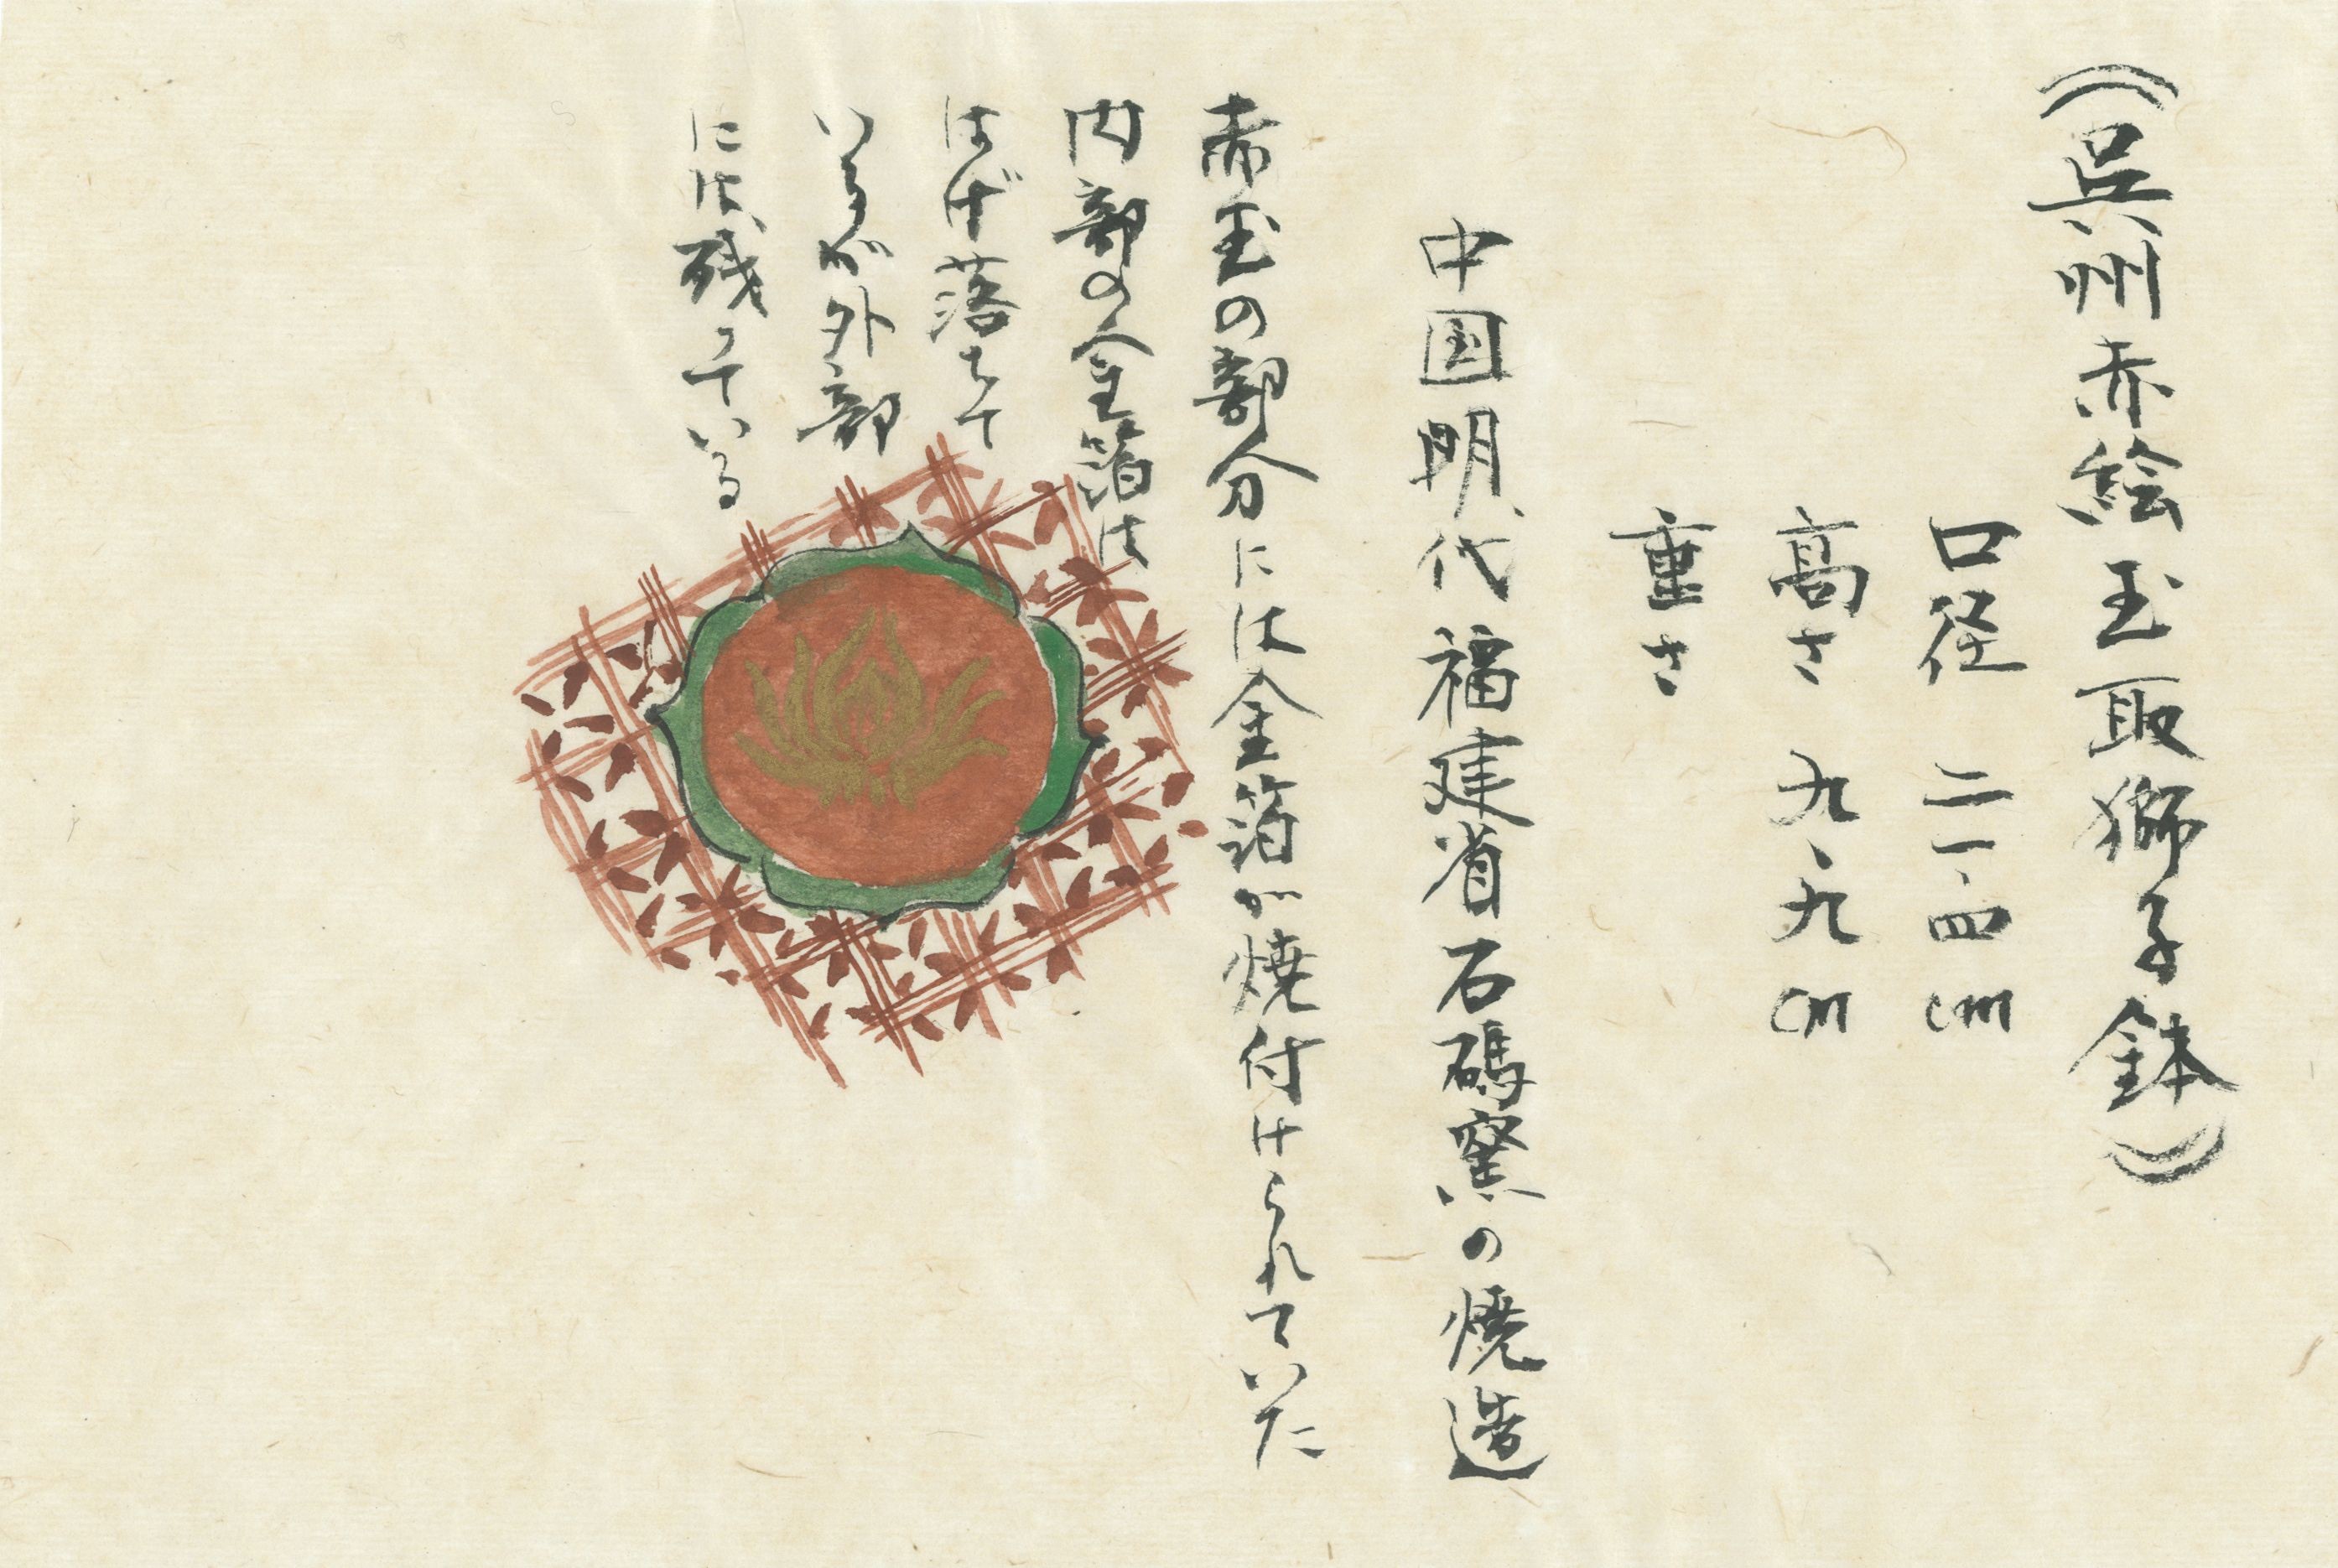 《呉州赤絵玉取獅子鉢》
口径 二一、四cm
高さ 九、九cm
重さ
中国明代福建省石碼窯の焼造
赤玉の部分には金箔が焼付けられていた
内部の金箔は
はげ落ちて
いるが外部
には残っている